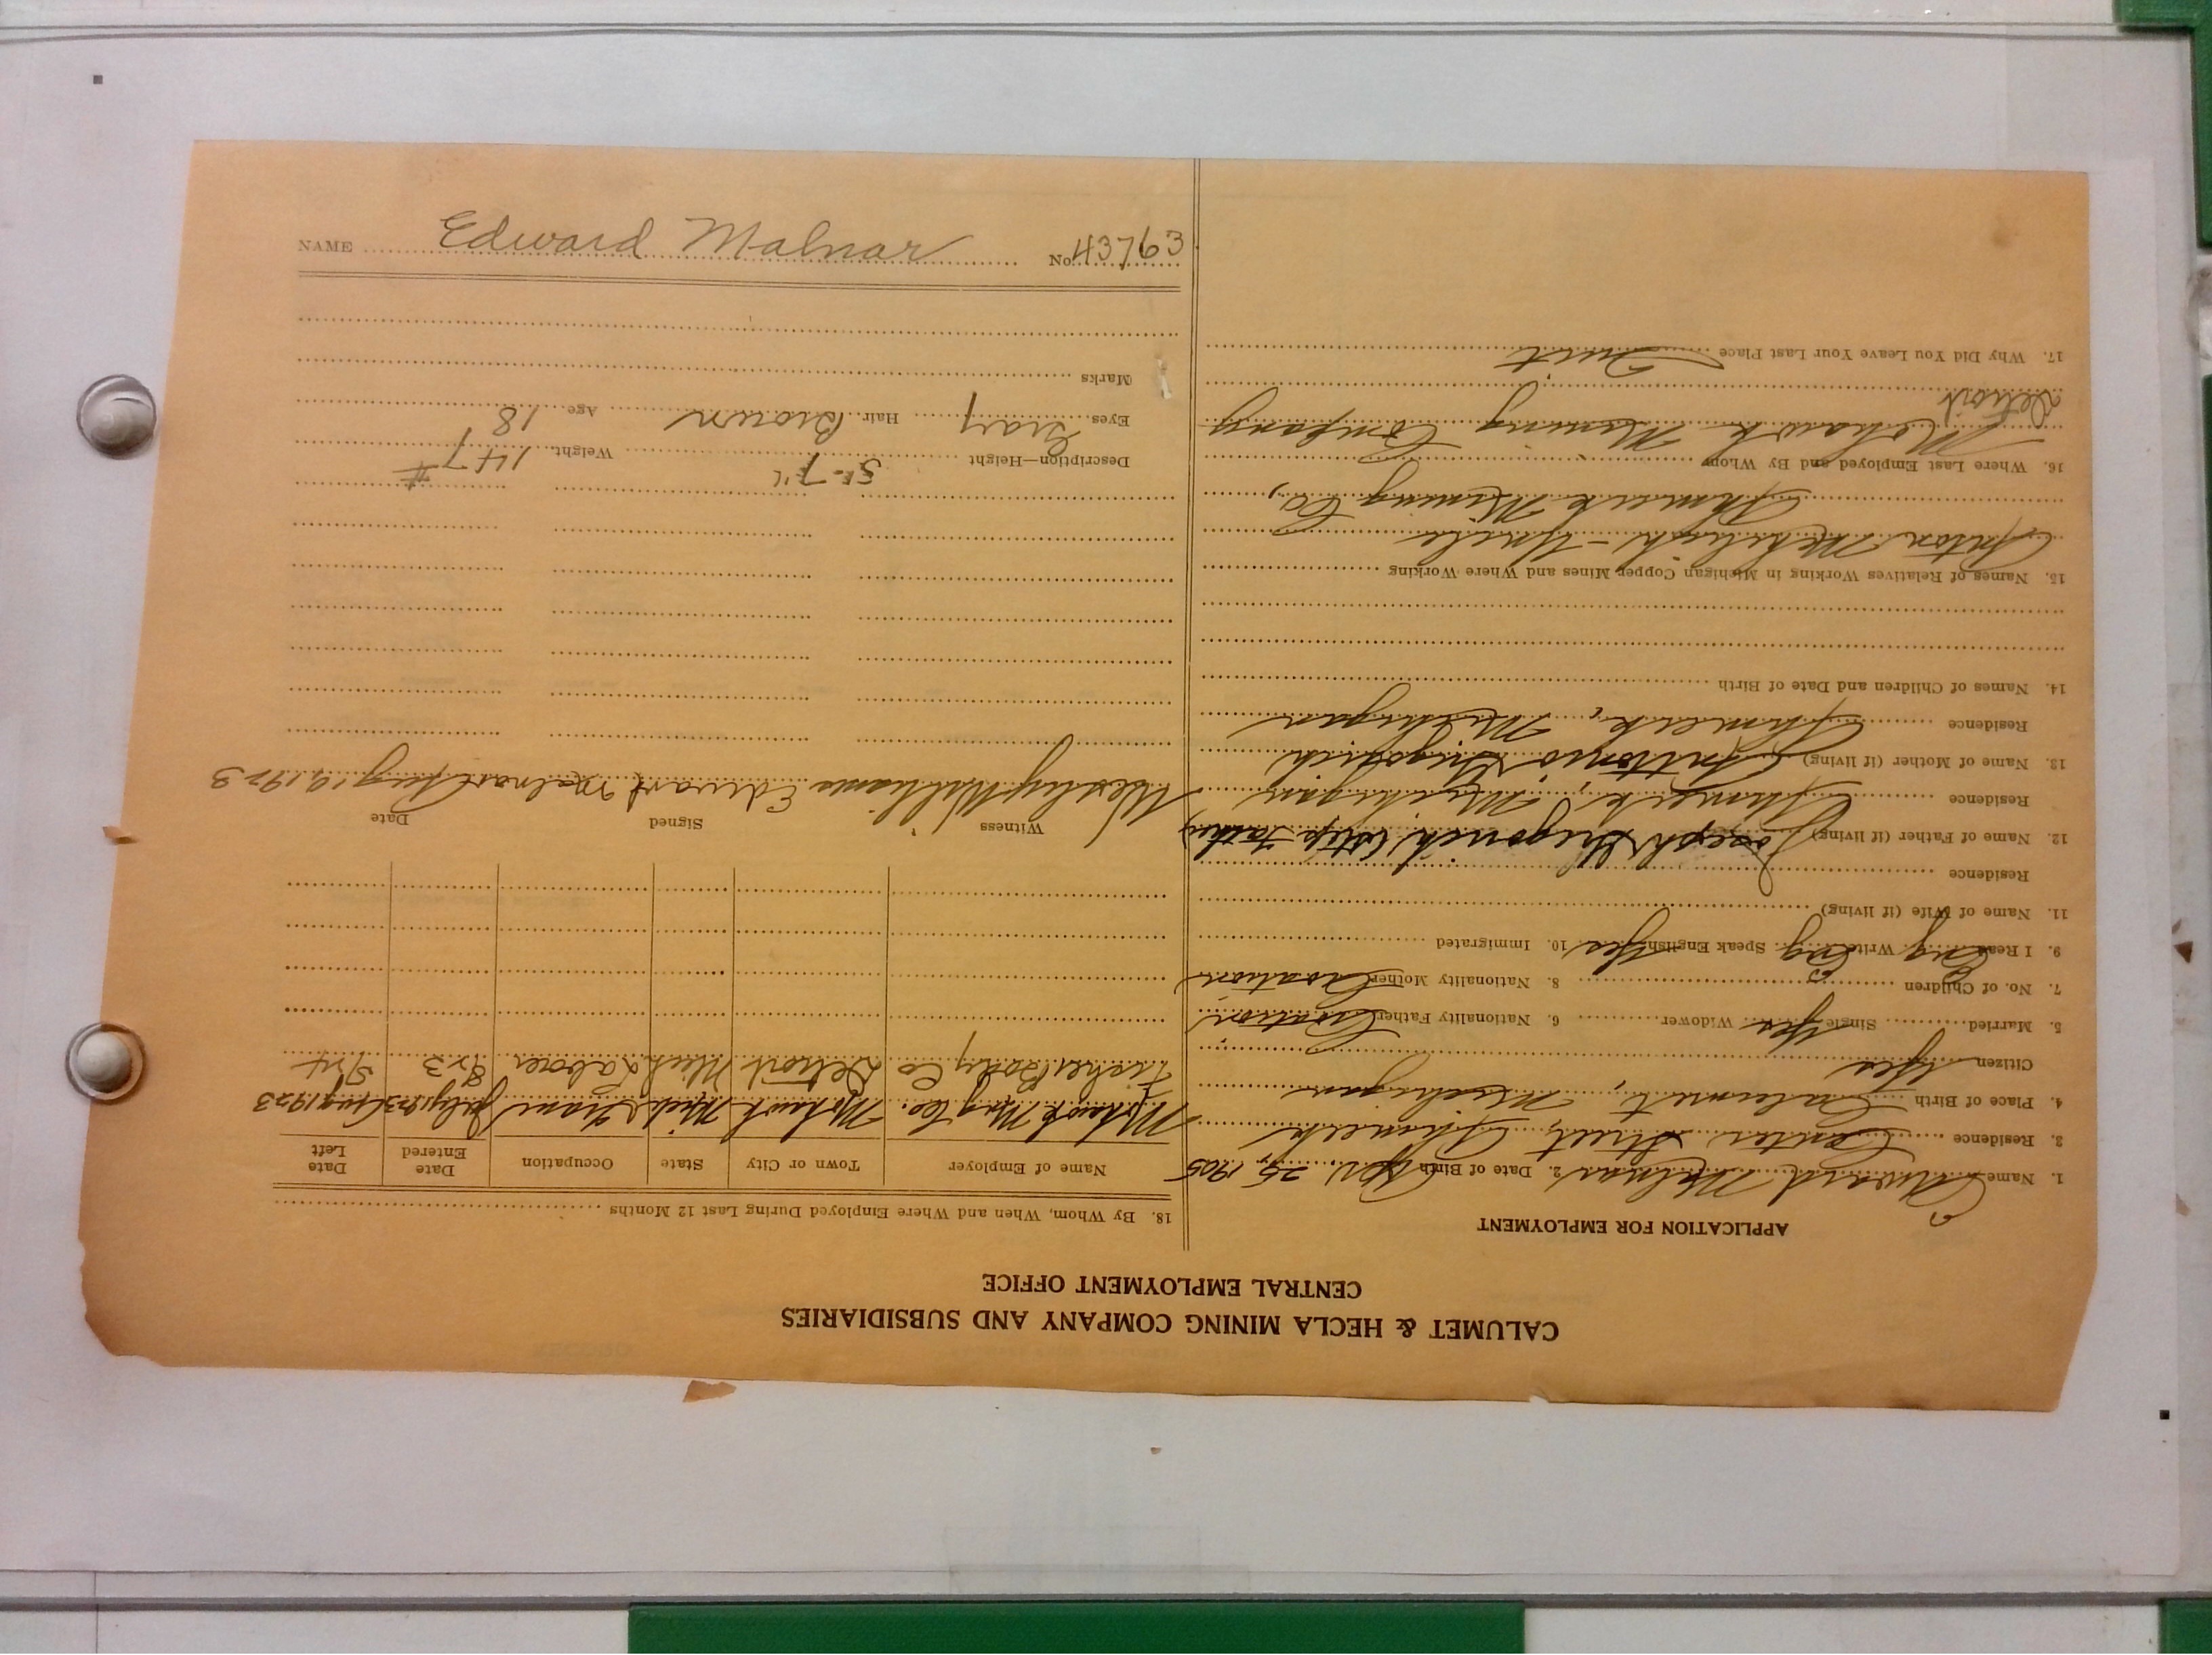 CALUMET & HECLA MINING COMPANY AND SUBSIDIARIES
CENTRAL EMPLOYMENT OFFICE
APPLICATION FOR EMPLOYMENT
1. Name Edward Malnar 2. Date of Birth Apr. 25, 1905
3. Residence Center Street, Ahmeek
4. Place of Birth Calumet, Michigan
Citizen Yes
5. Married Single Yes Widower 6. Nationality Father Croatian
7. No. of Children 8. Nationality Mother Croatian
9. I Read Eng Write Eng Speak English Yes 10. Immigrated
11. Name of Wife (if living)
Residence
12. Name of Father (if living) Joseph Gregorich (step father)
Residence Ahmeek, Michigan
13. Name of Mother (if living) Gregorich
Residence Ahmeek, Michigan
14. Names of Children and Date of Birth
15. Names of Relatives Working in Michigan Copper Mines and Where Working
Anton - Uncle
Ahmeek Mining Co,
16. Where Last Employed and By Whom
Mohawk Mining Company
Detroit
17. Why Did You Leave Your Last Place Quit
18. By Whom, When and Where Employed During Last 12 Months
Name of Employer Town or City State Occupation Date Entered Date Left
Mohawk Mng Co. Mohawk Mich Tram July 1923 Aug 1923
Fisher Body Co Detroit Mich Laborer
Witness Signed Date
Wesley Williams Edward Malnar Aug 19 1923
Description—Height 5'-7" Weight 147 #
Eyes Gray Hair Brown Age 18
Marks
NAME Edward Malnar No. 43763